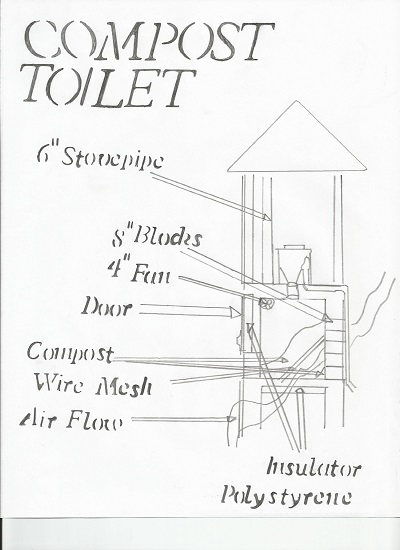 COMPOST
TOILET
6" Stovepipe
8" Blocks
4" Fan
Door
Compost
Wire Mesh
Air Flow
Insulator
Polystyrene